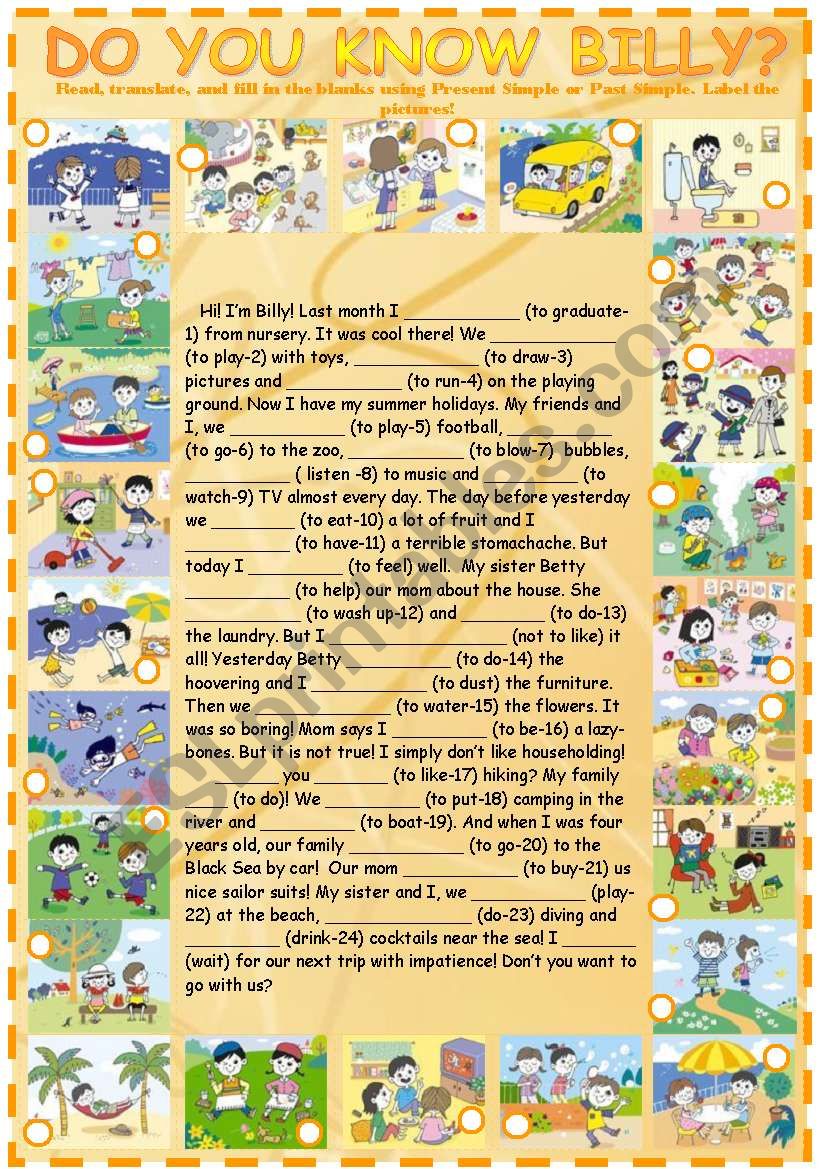 DO YOU KNOW BILLY?
Read, translate, and fill in the blanks using Present Simple or Past Simple. Label the
pictures!
Hi! I'm Billy! Last month I ___________ (to graduate-
1) from nursery. It was cool there! We ____________
(to play-2) with toys, ____________ (to draw-3)
pictures and ___________ (to run-4) on the playing
ground. Now I have my summer holidays. My friends and
I, we ___________ (to play-5) football, __________
(to go-6) to the zoo, ___________ (to blow-7) bubbles,
__________ ( listen -8) to music and _________ (to
watch-9) TV almost every day. The day before yesterday
we ________ (to eat-10) a lot of fruit and I
__________ (to have-11) a terrible stomachache. But
today I _________ (to feel) well. My sister Betty
__________ (to help) our mom about the house. She
___________ (to wash up-12) and ________ (to do-13)
the laundry. But I _________________ (not to like) it
all! Yesterday Betty __________ (to do-14) the
hoovering and I ___________ (to dust) the furniture.
Then we _____________ (to water-15) the flowers. It
was so boring! Mom says I _________ (to be-16) a lazy-
bones. But it is not true! I simply don't like householding!
______ you _______ (to like-17) hiking? My family
____ (to do)! We _________ (to put-18) camping in the
river and _________ (to boat-19). And when I was four
years old, our family ___________ (to go-20) to the
Black Sea by car! Our mom ___________ (to buy-21) us
nice sailor suits! My sister and I, we ___________ (play-
22) at the beach, ______________ (do-23) diving and
_________ (drink-24) cocktails near the sea! I _______
(wait) for our next trip with impatience! Don't you want to
go with us?
ESLprintables.com